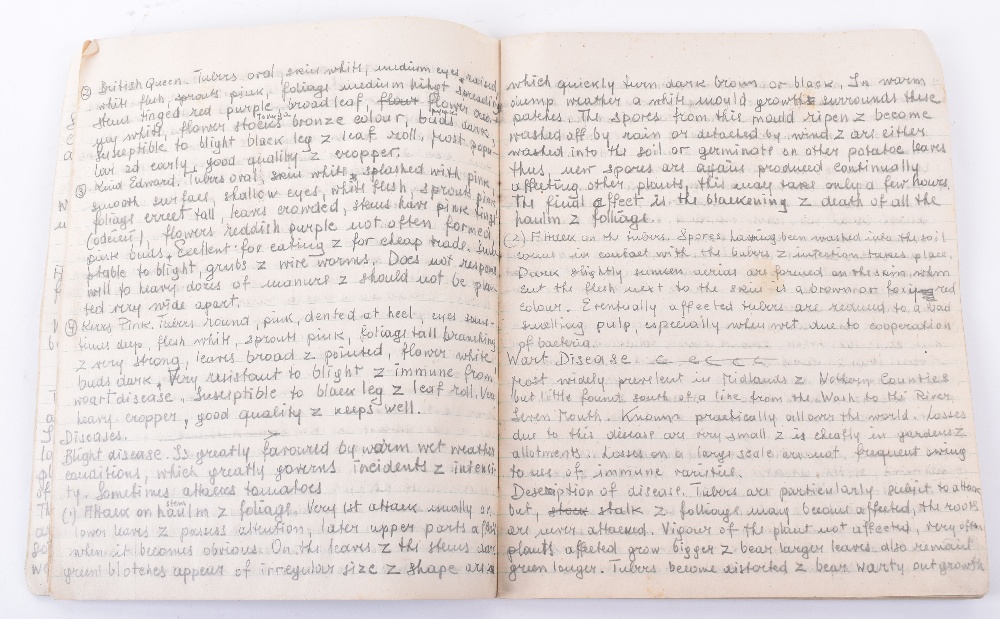 (2) British Queen. Tubers oval, skin white, medium eyes, raised
white flesh, sprouts pink, foliage medium hihgt spreading
stems tinged red purple, broad leaf, flower crea-
my white, flower stocks bronze colour, buds dark,
susceptible to blight black leg z leaf roll, most popu-
lar 2d early, good quality z cropper.
(3) King Edward. Tubers oval, skin white, splashed with pink,
smooth surfase, shallow eyes, white flesh, sprouts pink
foliage errect tall, leaves crowded, stems have pink tinge
flowers reddish purple not often formed
pink buds, Exellent for eating z for cheap trade. Sus-
ptable to blight, grubs z wire worms. Does not respond
well to heavy doses of manure z should not be plan-
ted very wide apart.
(4) Kerrs Pink. Tubers round, pink, dented at heel, eyes some-
times deep, flesh white, sprouts pink, foliage tall branching
z very strong, leaves broad z pointed, flower white
buds dark, Very resistant to blight z immune from
woart disease, Susiptible to black leg z leaf roll. Very
heavy cropper, good quality z keeps well.
Diseases.
Blight disease. Is greatly favoured by warm wet weather
conditions, which greatly governs incidents z intensi-
ty. Sometimes attacks tomatoes
(1) Attack on haulm stem z foliage. Very 1st attack usually on
lower leaves z passes attention, later upper parts affected
when it becomes obvious. On the leaves z the stems dark
green blotches appear of irregular size z shape
which quickly turn dark brown or black. In warm
dump weather a white mould growth surrounds these
patches. The spores from this mould ripen z become
washed off by rain or detached by wind z are either
washed into the soil or germinate on other potatoe leaves
thus, new spores are again produced continually
affecting other plants, this may take only a few hours.
The final affect is the blackening z death of all the
haulm z foliage.
(2) Attack on the tubers. Spores having been washed into the soil
come in contact with the tubers z infection takes place.
Dark slightly sunken arias are formed on the skin when
cut the flesh next to the skin is a brown or foxy red
colour. Eventially affected tubers are reduced to a bad
smelling pulp, especially when wet due to cooperation
of bacteria.
Wart Disease
Most widely prevelent in Midlands z Nothern Counties
but little found south of a line from the Wash to the River
Seven Mouth. Known practically all over the world. Losses
due to this disease are very small z is cheafly in gardens z
allotments. Losses on a large scale are not frequent owing
to use of immune varieties.
Description of disease. Tubers are particularly subjit to attack
but, stock stalk z folliage may become affected, the roots
are never attacked. Vigour of the plant not affected, very often
plants affected grow bigger z bear larger leaves also remain
green longer. Tubers become distorted z bear warty outgrowth